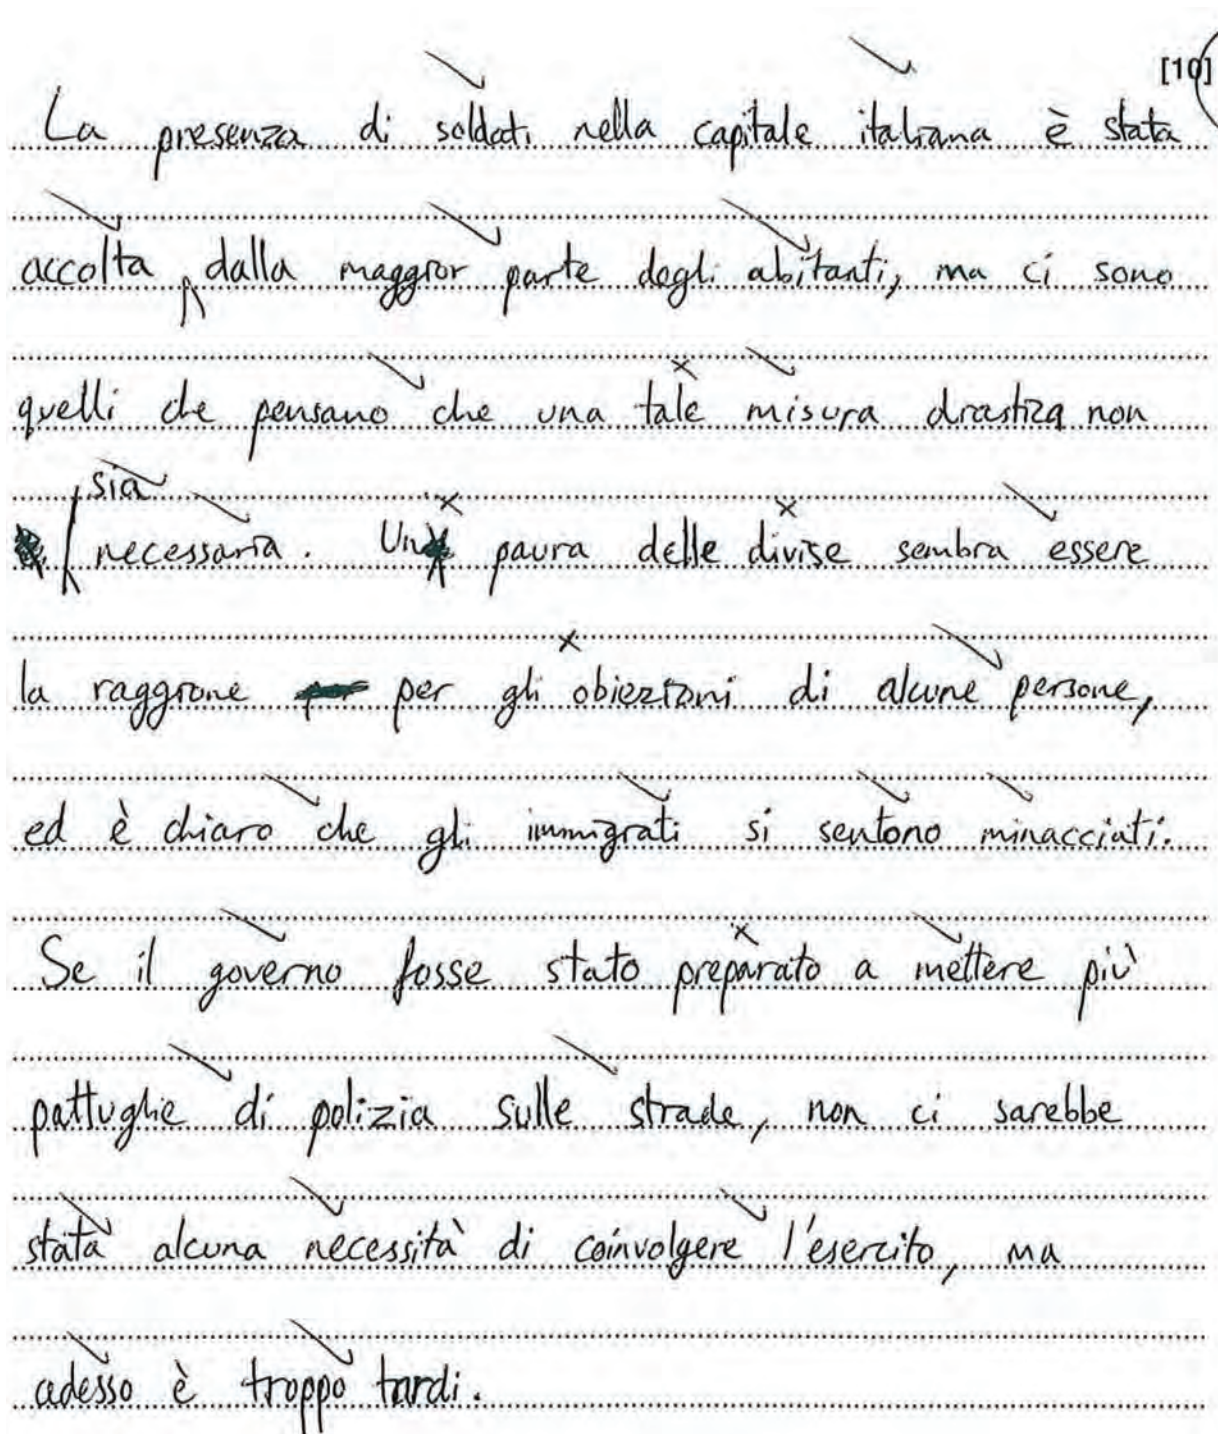 [10]
La presenza di soldati nella capitale italiana è stata
accolta dalla maggior parte degli abitanti, ma ci sono
quelli che pensano che una tale misura drastica non
sia
necessaria. Un paura delle divise sembra essere
la raggione per gli obiezioni di alcune persone,
ed è chiaro che gli immigrati si sentono minacciati.
Se il governo fosse stato preparato a mettere più
pattuglie di polizia sulle strade, non ci sarebbe
stata alcuna necessità di coinvolgere l'esercito, ma
adesso è troppo tardi.